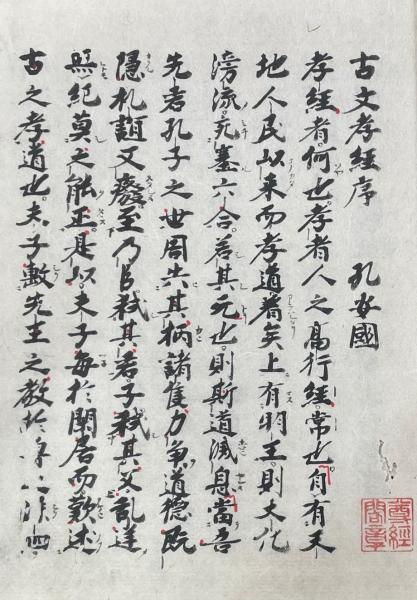 古文孝經序 孔安國
孝經者何也孝者人之高行經常也自有天
地人民以来而孝道著矣上有明王則大化
滂流充塞六合若其无也則斯道滅息當吾
先君孔子之世周失其柄諸侯力争道德既
隠礼誼又廢至乃臣弑其君子弑其父乱逆
無紀莫之能正是以夫子每於閑居而歎述
古之孝道也夫子敷先王之教於魯之洙泗
尊經閣章